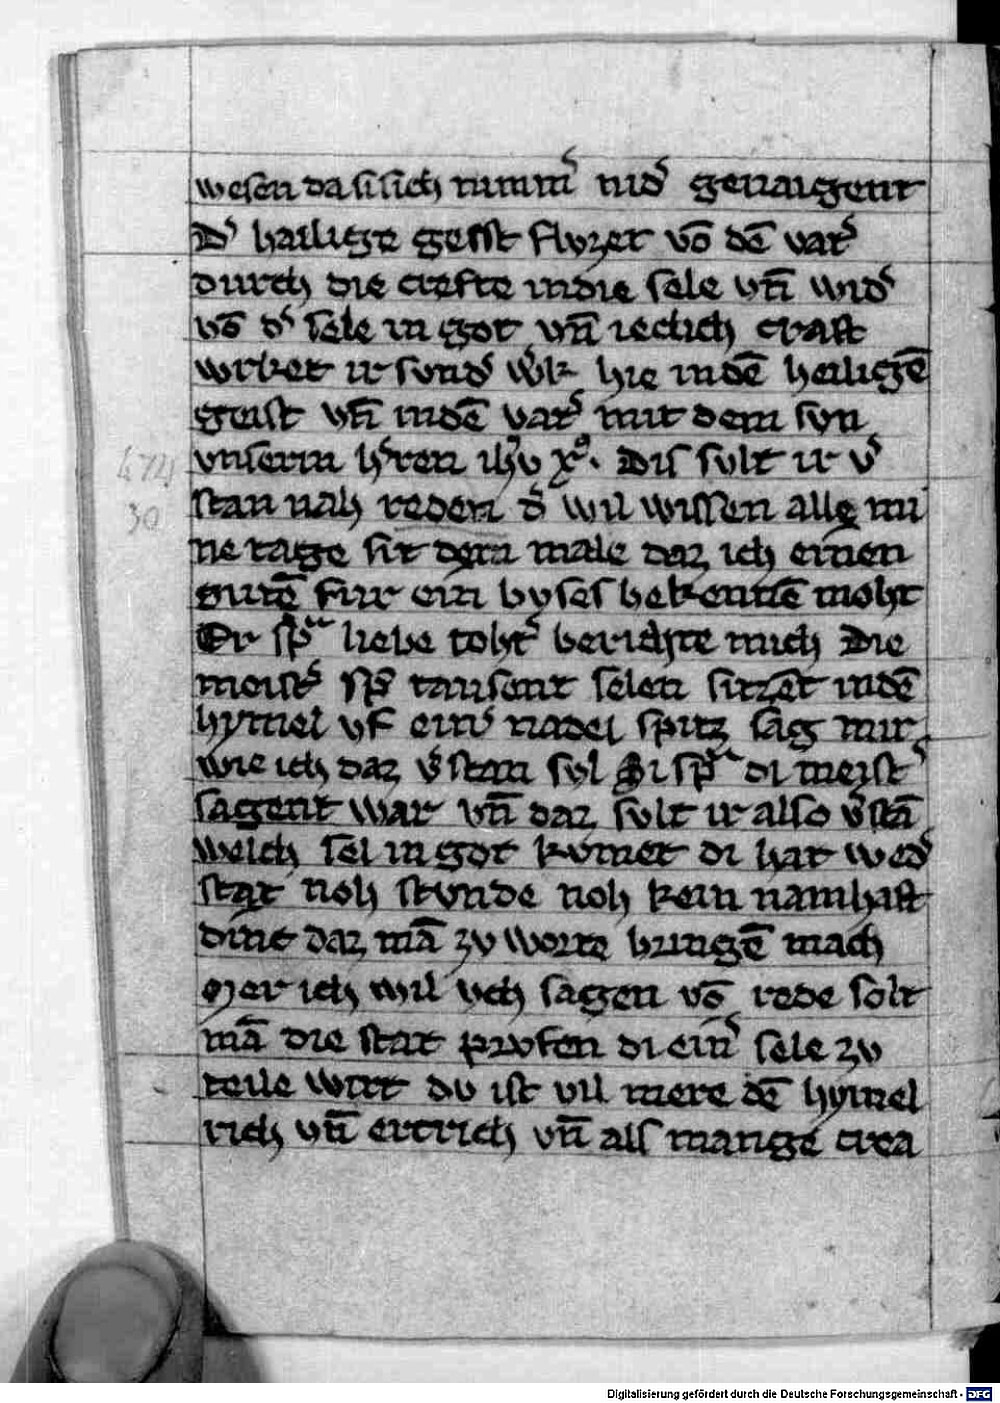 wesen da si sich nimm͛ nid͛ genaigent
D͛ hailige geist flvzet vō dē vat͛
durch die crefte in die sele vn̄ wid͛
vō d͛ sele in got vn̄ ieclich craft
wrket ir svnd͛ w͛k hie in dē heiligē
geist vn̄ in dē vat͛ mit dem svn
vnserm h͛ren ih͛v x͛o. Dis svlt ir v͛
stan nah reden d͛ wil wissen alle mi
ne tage sit dem male daz ich einen
gutē fur ein bvses bekennē moht
Er sp͛ch liebe toht͛ berichte mich Die
meist͛ sp͛ tausent selen sitzēt in dē
hymel vf ein͛ nadel spitz sag mir
wie ich daz v͛stan svl Si sp͛ch di meist͛
sagent war vn̄ daz svlt ir also v͛stā
welch sel in got kvmet di hat wed͛
stat noh stvnde noh kein namhaft
dinc daz mā zv worte bringē mach
Mer ich wil vch sagen vō rede solt
mā die stat prvfen di ein͛ sele zv
teile wirt dv ist vil mere dē hymel
rich vn̄ ertrich vn̄ als mange crea
474
30
Digitalisierung gefördert durch die Deutsche Forschungsgemeinschaft - DFG